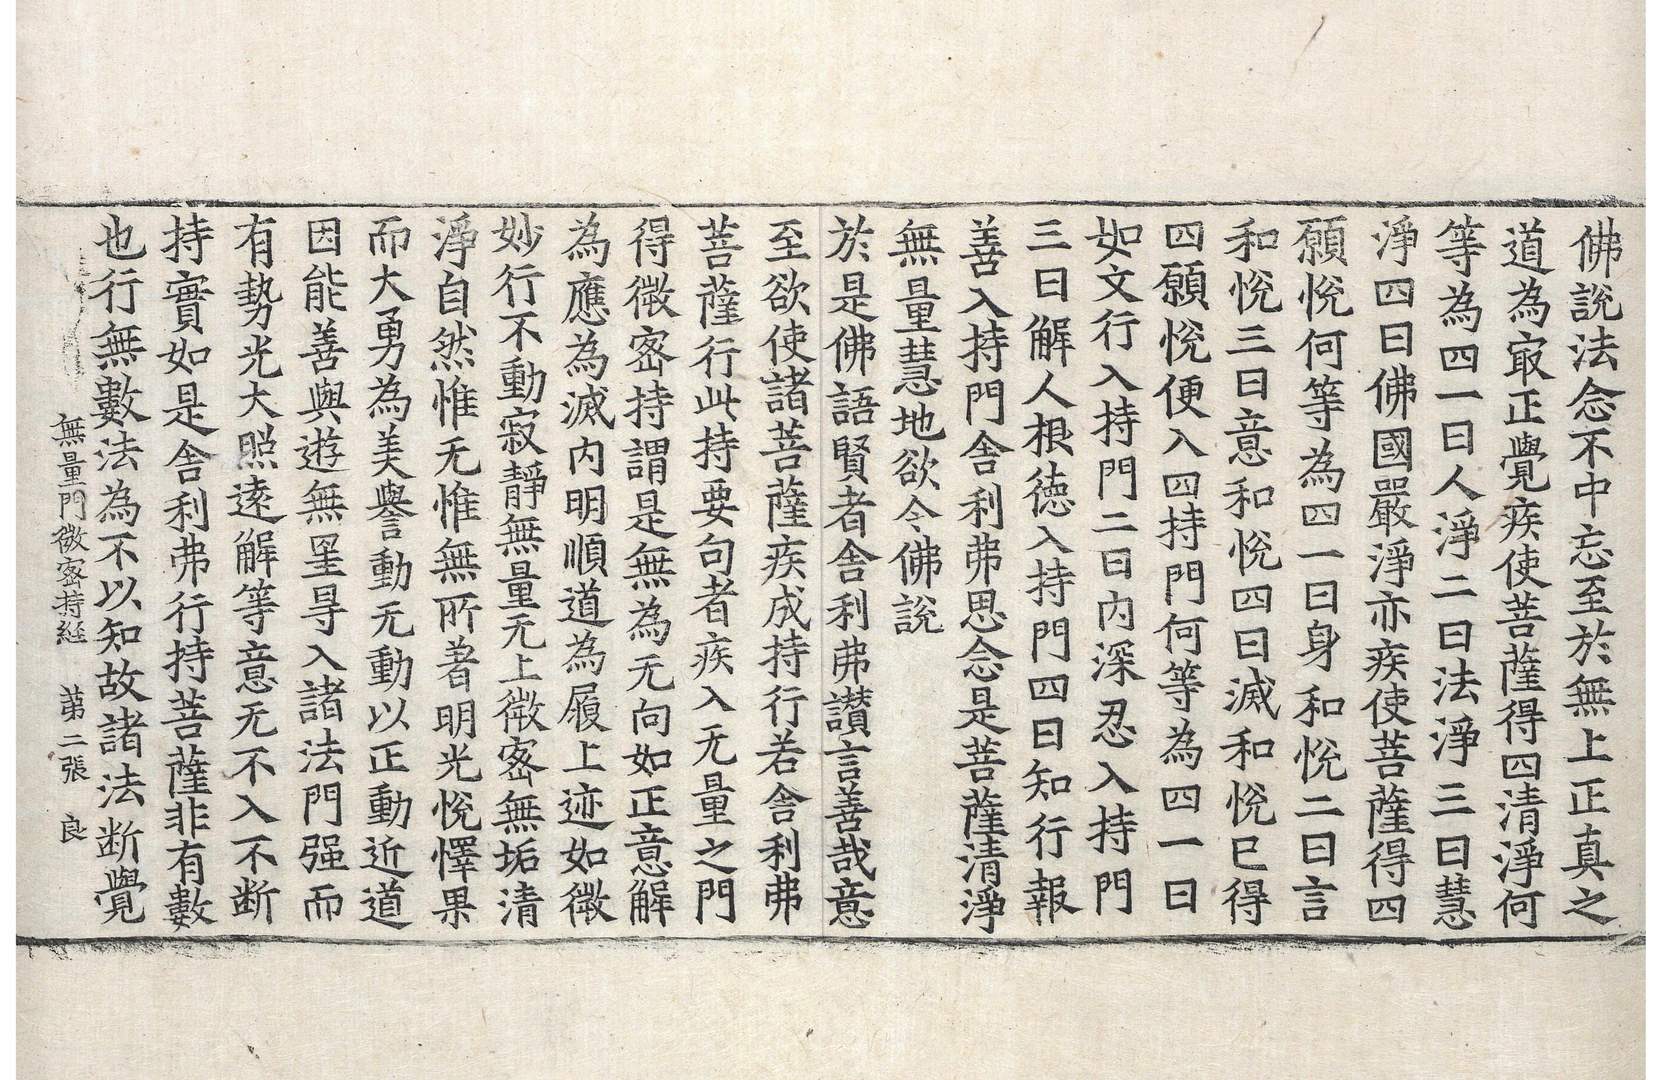 佛說法念不中忘至於無上正真之
道為㝡正覺疾使菩薩得四清淨何
等為四一曰人淨二曰法淨三曰慧
淨四曰佛國嚴淨亦疾使菩薩得四
願悅何等為四一曰身和悅二曰言
和悅三曰意和悅四曰滅和悅已得
四願悅便入四持門何等為四一曰
如文行入持門二曰內深忍入持門
三曰解人根德入持門四曰知行報
善入持門舍利弗思念是菩薩清淨
無量慧地欲令佛說
於是佛語賢者舍利弗讚言善哉意
至欲使諸菩薩疾成持行若舍利弗
菩薩行此持要句者疾入无量之門
得微密持謂是無為无向如正意解
為應為滅內明順道為履上迹如微
妙行不動寂靜無量无上微密無垢清
淨自然惟无惟無所著明光悅懌果
而大勇為美譽動无動以正動近道
因能善與遊無罣㝵入諸法門强而
有勢光大照遠解等意无不入不断
持實如是舍利弗行持菩薩非有數
也行無數法為不以知故諸法断覺
無量門微密持經 第二張 良